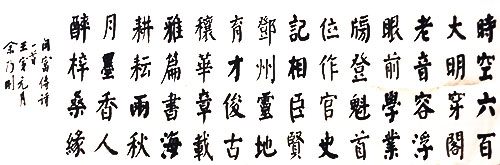 時空六百
大明穿閣
老音容浮
眼前學業
牓登魁首
位作官史
記相臣賢
鄧州靈地
育才俊古
穰華章載
雅篇書海
耕耘雨秋
月墨香人
醉梓桑緣
富傳詩
一首
壬寅元月